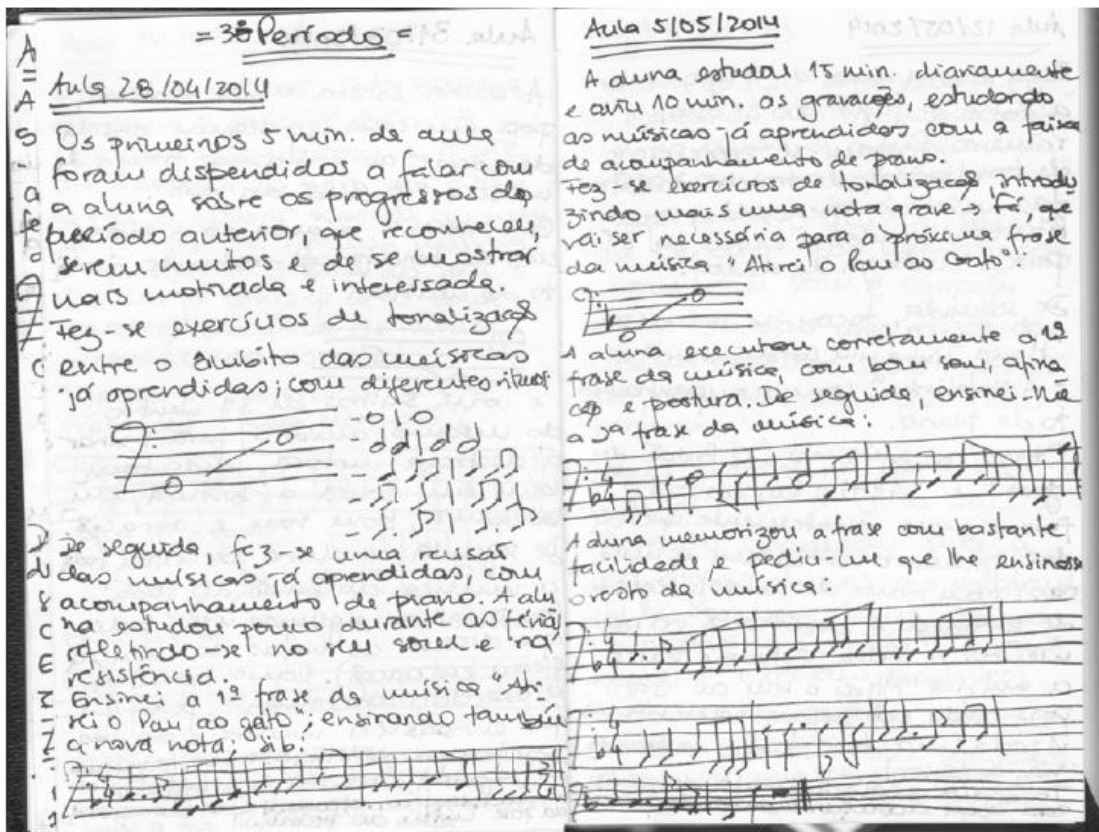 = 3º Período =
Aula 28/04/2014
Os primeiros 5 min. de aula
foram dispendidos a falar com
a aluna sobre os progressos do
período anterior, que reconheceu,
serem muitos e de se mostrar
mais motivada e interessada.
Fez-se exercícios de tonalização
entre o âmbito das músicas
já aprendidas; com diferentes ritmos
De seguida, fez-se uma revisão
das músicas já aprendidas, com
acompanhamento de piano. A alu
na estudou pouco durante as férias
refletindo-se no seu som e na
resistência.
Ensinei a 1ª frase da música "Ati-
rei o Pau ao gato"; ensinando também
a nova nota; sib:
Aula 5/05/2014
A aluna estudou 15 min. diariamente
e ouviu 10 min. as gravações, estudando
as músicas já aprendidas com a faixa
de acompanhamento de piano.
Fez-se exercícios de tonalização, introdu
zindo mais uma nota grave → fá, que
vai ser necessária para a próxima frase
da música "Atirei o Pau ao Gato".
A aluna executou corretamente a 1ª
frase da música, com bom som, afina
ção e postura. De seguida, ensinei-lhe
a frase da música:
A aluna memorizou a frase com bastante
facilidade e pediu-me que lhe ensinasse
o resto da música: